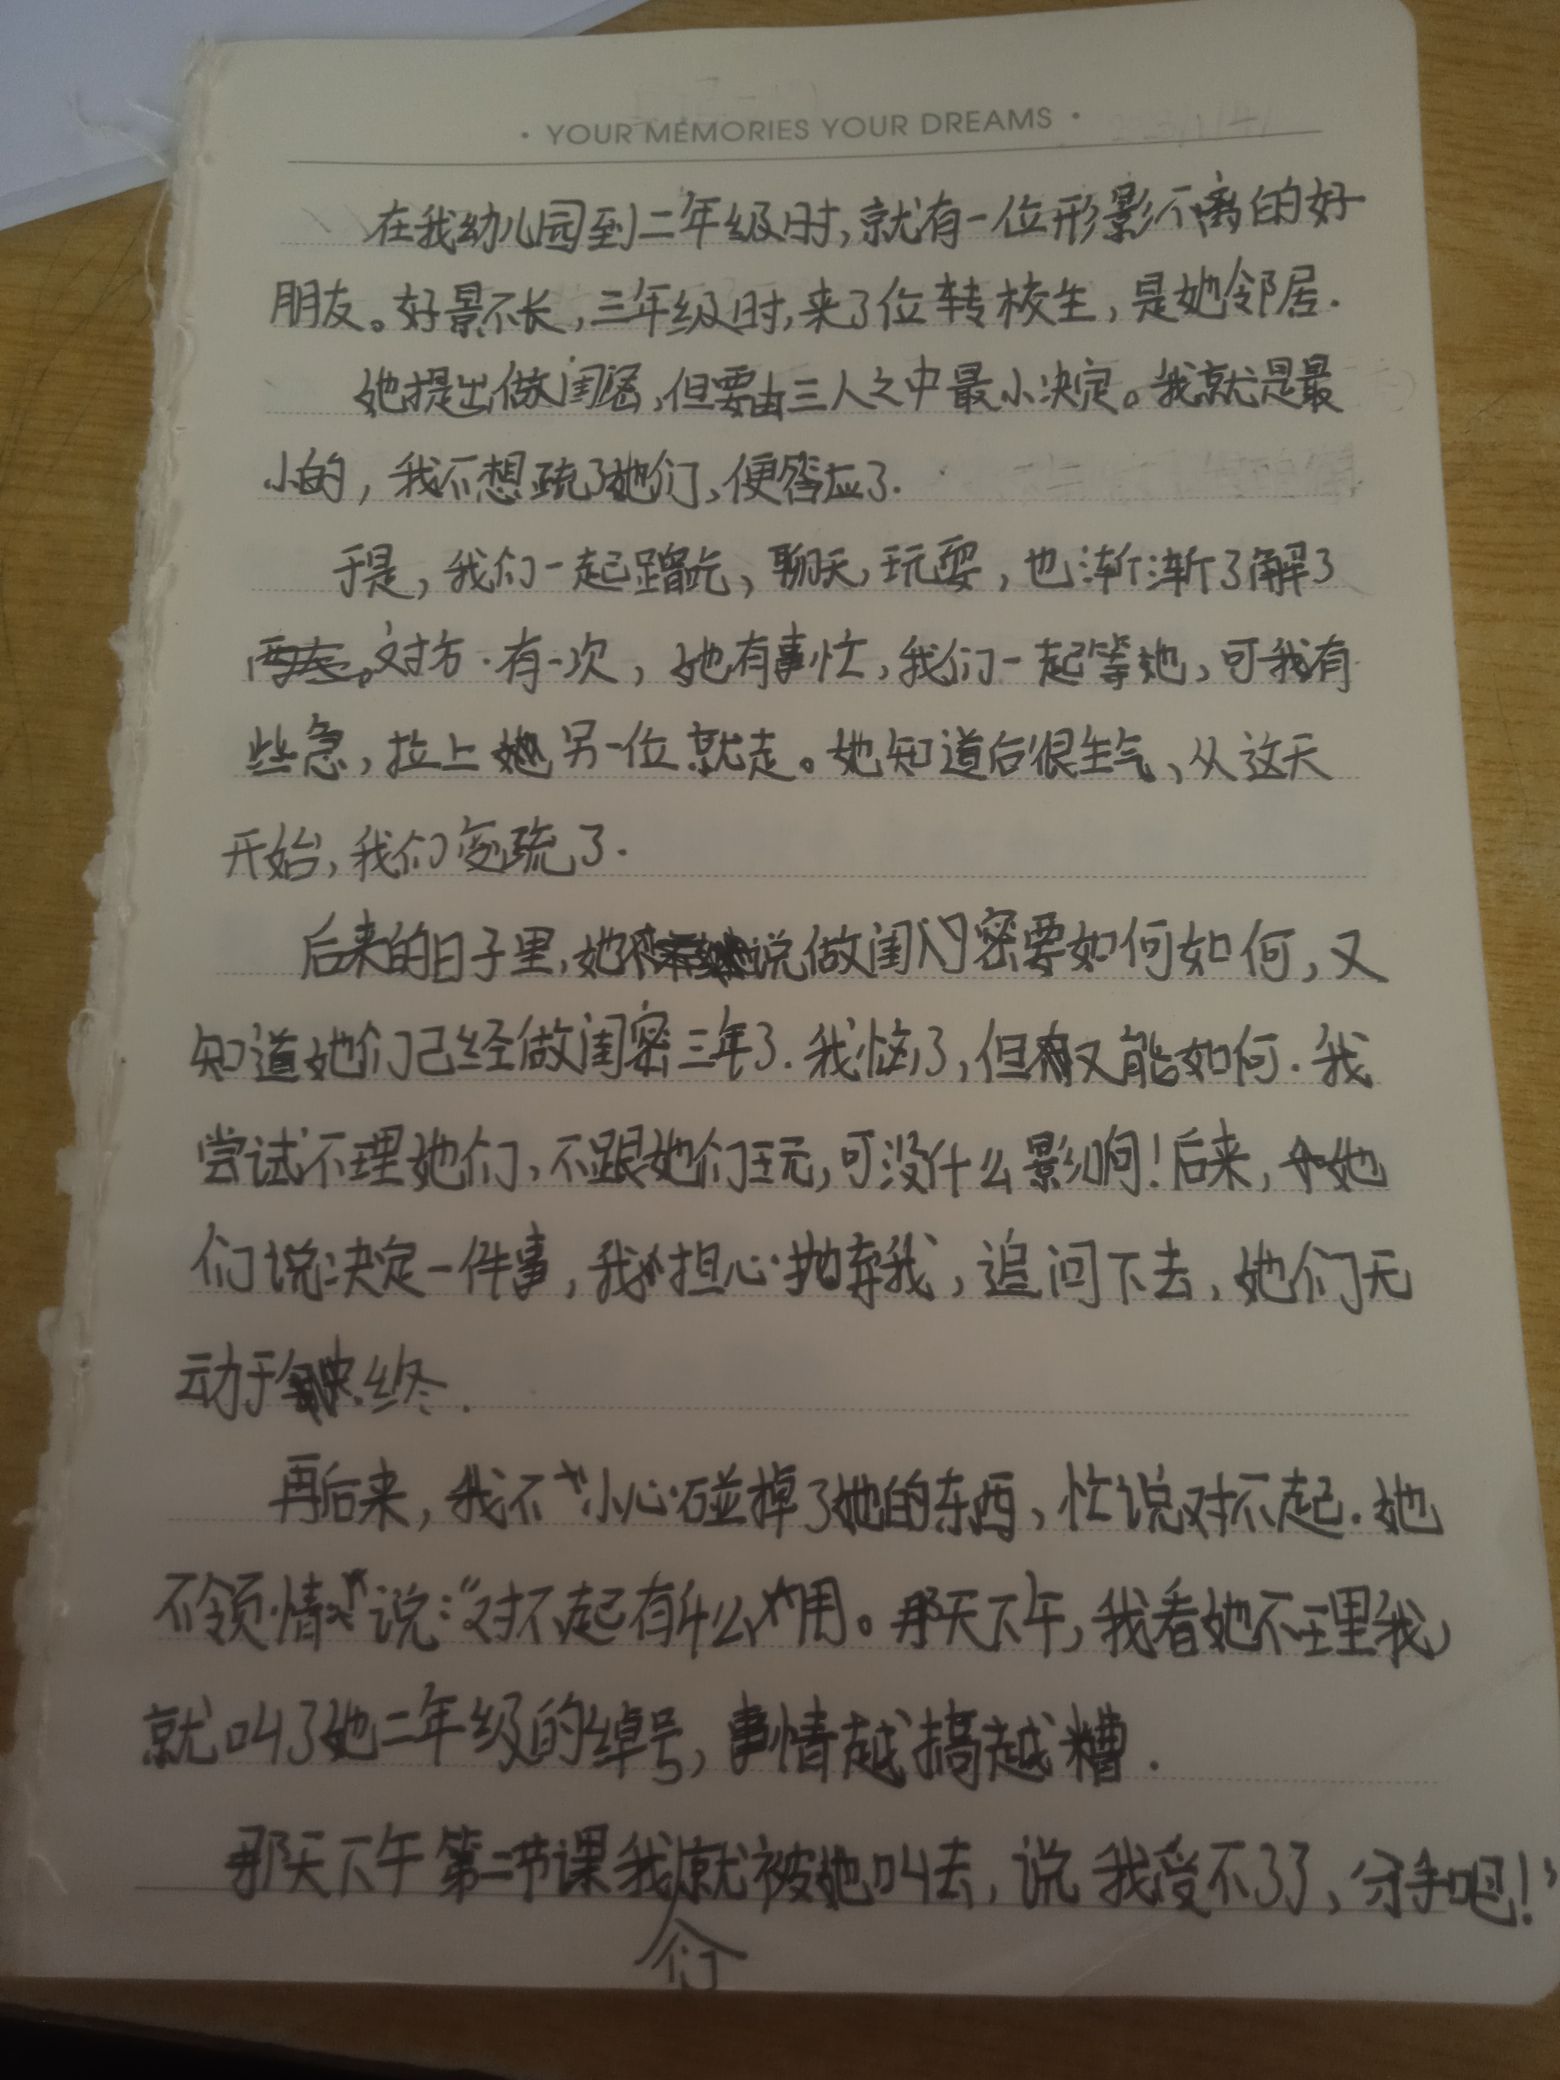 · YOUR MEMORIES YOUR DREAMS ·
在我幼儿园到二年级时,就有一位形影不离的好
朋友。好景不长,三年级时,来了位转校生,是她邻居.
她提出做闺密,但要由三人之中最小决定。我就是最
小的,我不想疏了她们,便答应了.
于是,我们一起蹭吃,聊天,玩耍,也渐渐了解了
对方.有一次,她有事忙,我们一起等她,可我有
些急,拉上另一位就走。她知道后很生气,从这天
开始,我们变疏了.
后来的日子里,她说做闺闪密要如何如何,又
知道她们己经做闺密三年了.我恼了,但又能如何.我
尝试不理她们,不跟她们玩,可没什么影响!后来,她
们说决定一件事,我担心抛弃我,追问下去,她们无
动于终.
再后来,我不小心碰掉了她的东西,忙说对不起.她
不领情说:“对不起有什么用。那天下午,我看她不理我,
就叫了她二年级的绰号,事情越搞越糟.
那天下午第二节课我们就被她叫去,说我受不了了,分手吧!”